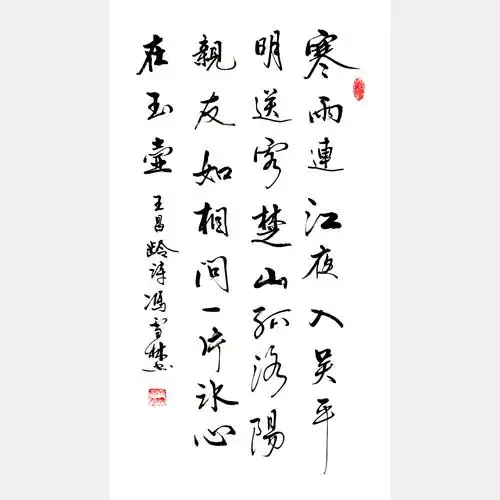 寒雨連江夜入吴平
明送客楚山孤洛陽
親友如相問一片冰心
在玉壺王昌龄诗馮雪林书